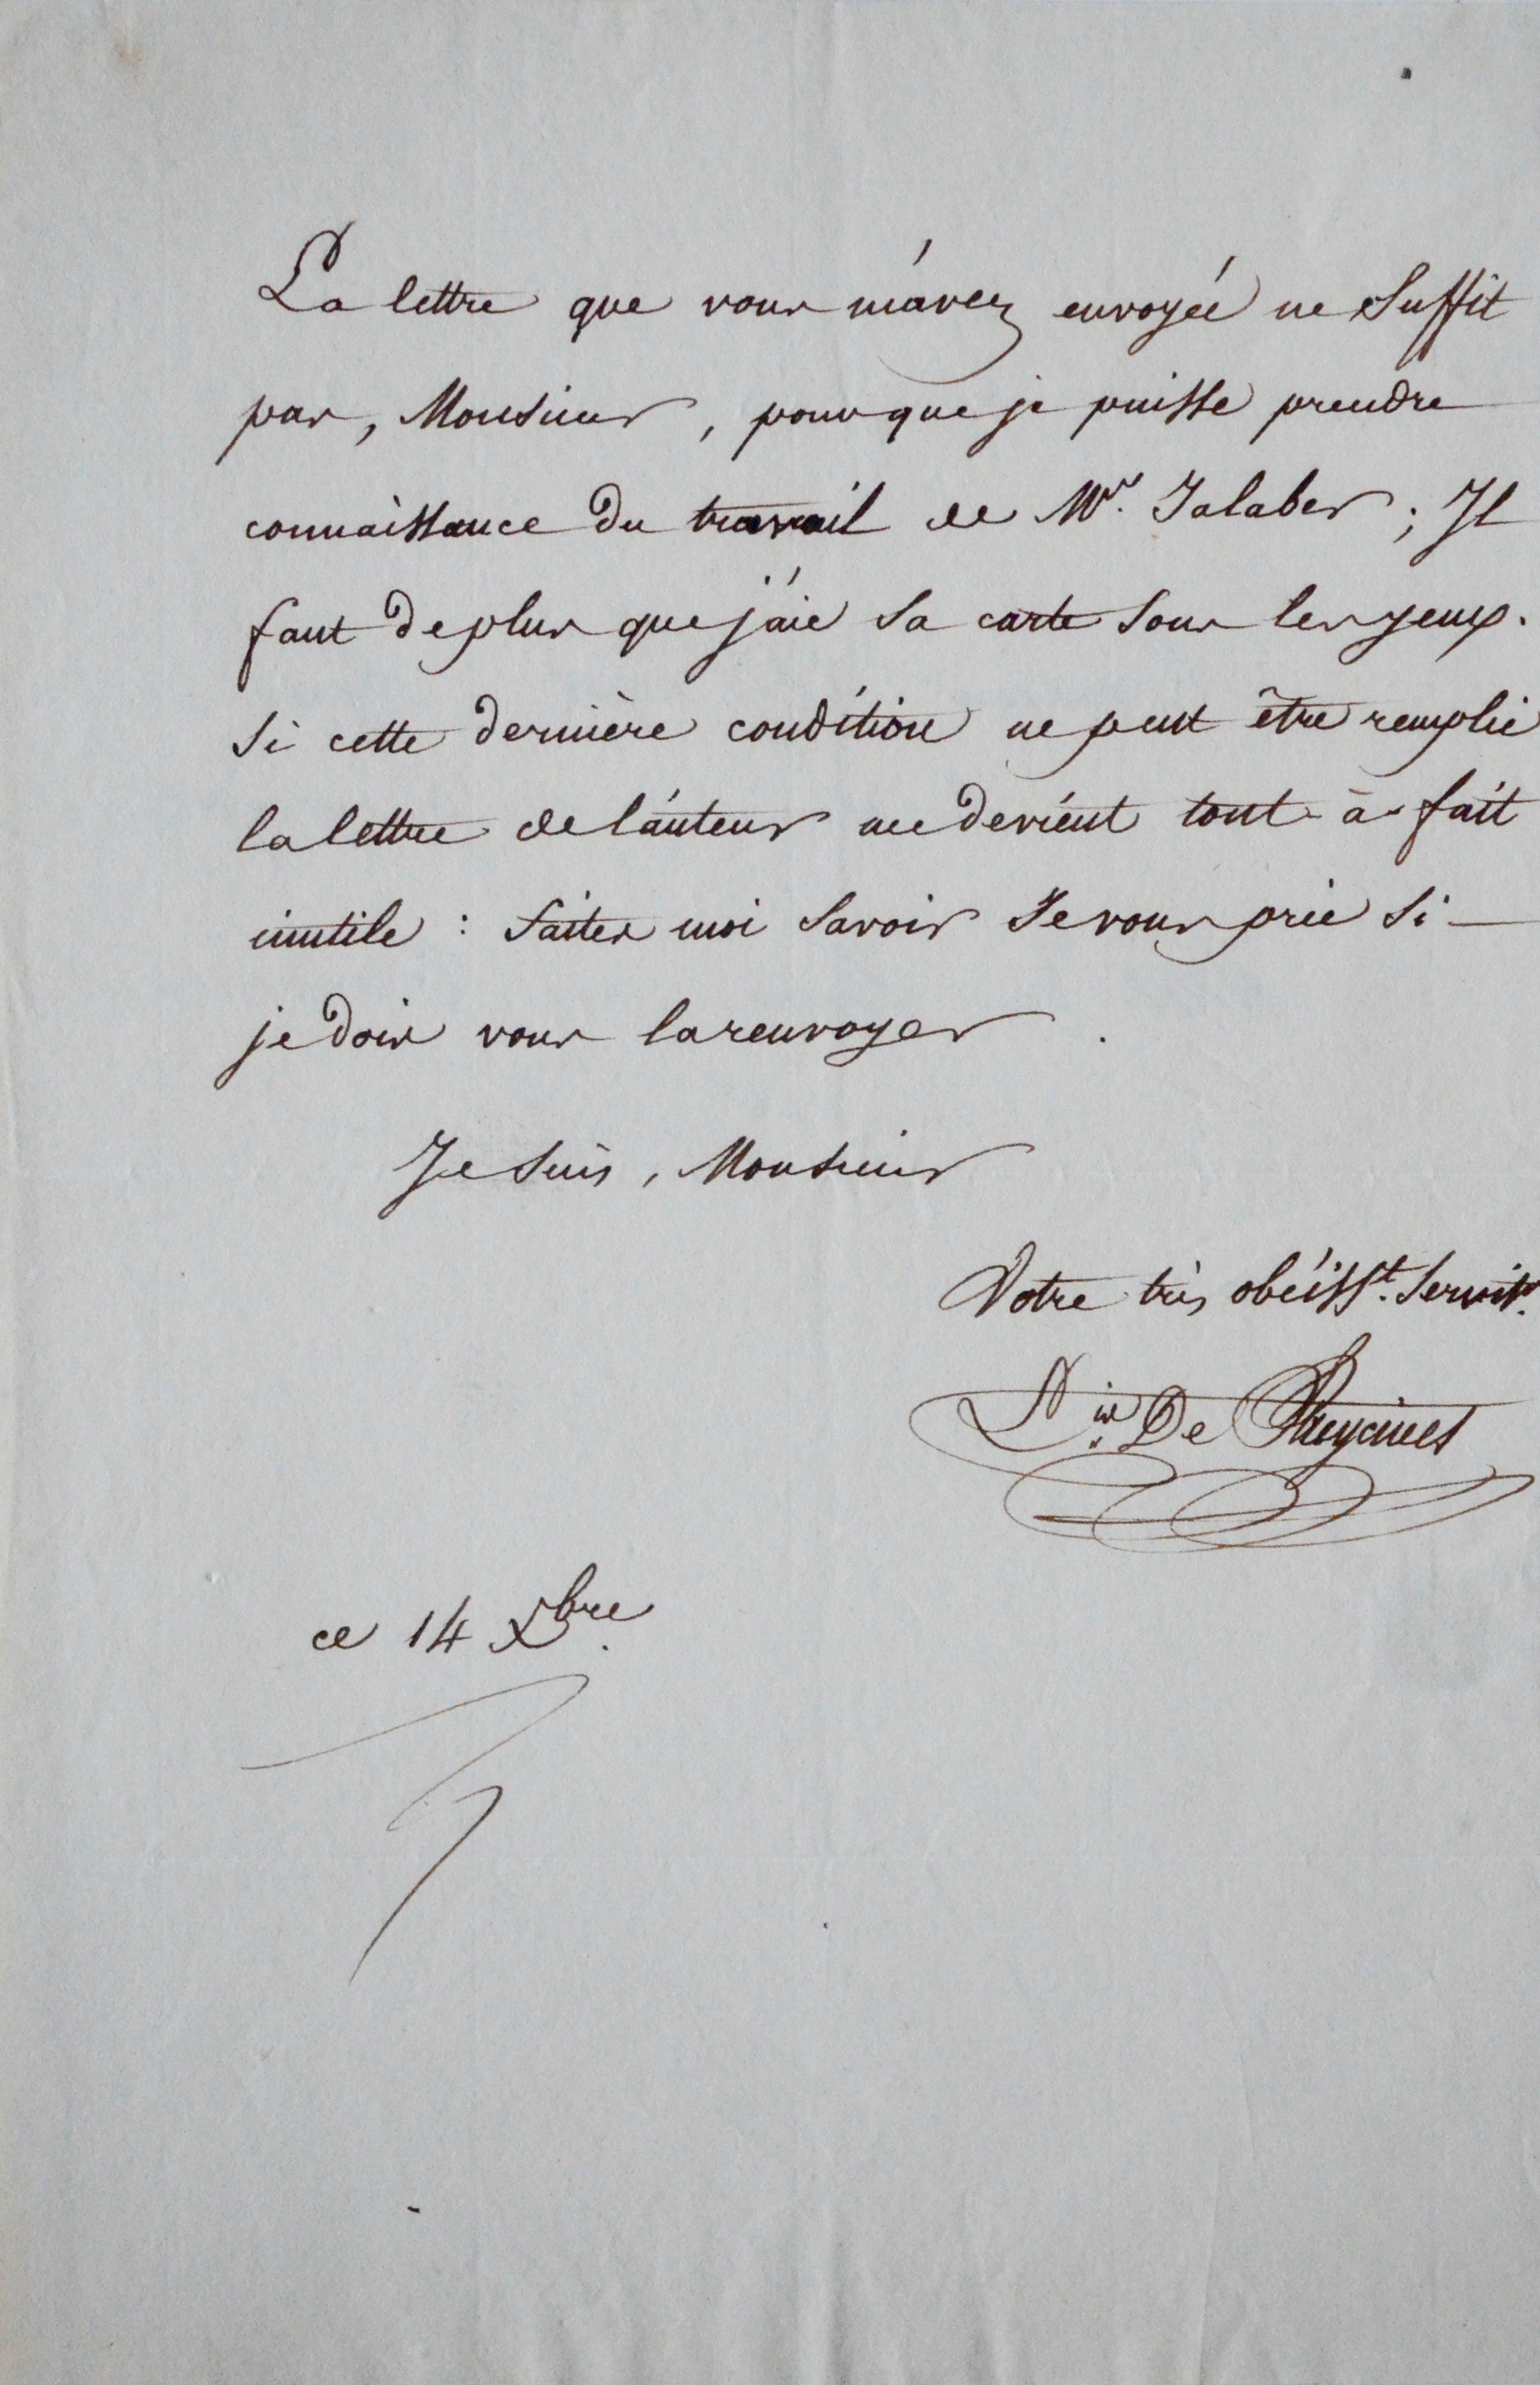 La lettre que vous m'avez envoyée ne suffit
pas, Monsieur, pour que je puisse prendre
connaissance du travail de Mr. Jalaber ; Il
faut de plus que j'aie sa carte sous les yeux.
Si cette dernière condition ne peut être remplie
la lettre de l'auteur me devient tout-à-fait
inutile : faites moi savoir Je vous prie si —
je dois vous la renvoyer.
Je suis, Monsieur
Votre très obéisst. servitr.
De Freycinet
ce 14 Xbre.